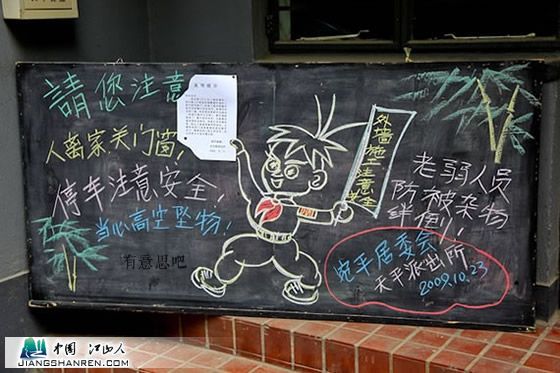 請您注意
人离家关门窗！
停车注意安全！
当心高空坠物！
有意思吧
外墙施工注意安全
老弱人员
防被杂物
绊倒！
宛平居委会
天平派出所
2009.10.23
中國 江山人
JIANGSHANREN.COM